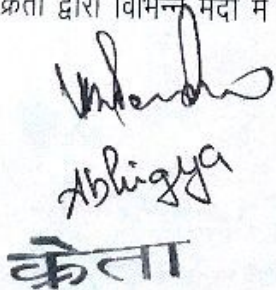 क्रेता द्वारा विभिन्न मदों में
Abhigya
क्रेता